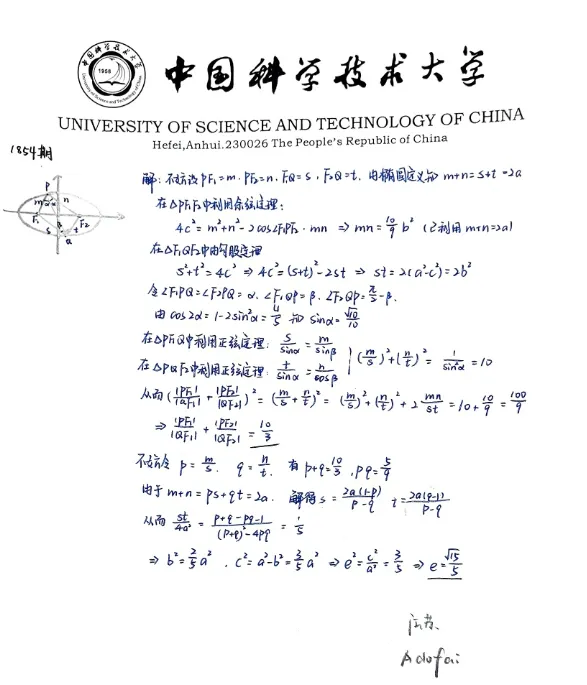 中国科学技术大学
UNIVERSITY OF SCIENCE AND TECHNOLOGY OF CHINA
Hefei,Anhui.230026 The People's Republic of China
1854期
解:不妨设PF₁=m, PF₂=n, F₁Q=s, F₂Q=t. 由椭圆定义知 m+n=s+t=2a
在△PF₁F₂中利用余弦定理:
4c²=m²+n²-2cos∠F₁PF₂·mn ⇒ mn=10/9 b² (已利用m+n=2a)
在△F₁QF₂中由勾股定理
s²+t²=4c² ⇒ 4c²=(s+t)²-2st ⇒ st=2(a²-c²)=2b²
令∠F₁PQ=∠F₂PQ=α, ∠F₁QP=β, ∠F₂QP=π/2-β.
由cos2α=1-2sin²α=4/5 知 sinα=√10/10
在△PF₁Q中利用正弦定理: s/sinα=m/sinβ
在△PQF₂中利用正弦定理: t/sinα=n/cosβ | (m/s)²+(n/t)²=1/sin²α=10
从而(|PF₁|/|QF₁|+|PF₂|/|QF₂|)²=(m/s+n/t)²=(m/s)²+(n/t)²+2mn/st=10+10/9=100/9
⇒ |PF₁|/|QF₁|+|PF₂|/|QF₂|=10/3
不妨令 p=m/s, q=n/t. 有 p+q=10/3, pq=5/9
由于 m+n=ps+qt=2a. 解得 s=2a(1-q)/p-q t=2a(p-1)/p-q
从而 st/4a²=p+q-pq-1/(p+q)²-4pq=1/5
⇒ b²=2/5 a², c²=a²-b²=3/5 a² ⇒ e²=c²/a²=3/5 ⇒ e=√15/5
Adofai